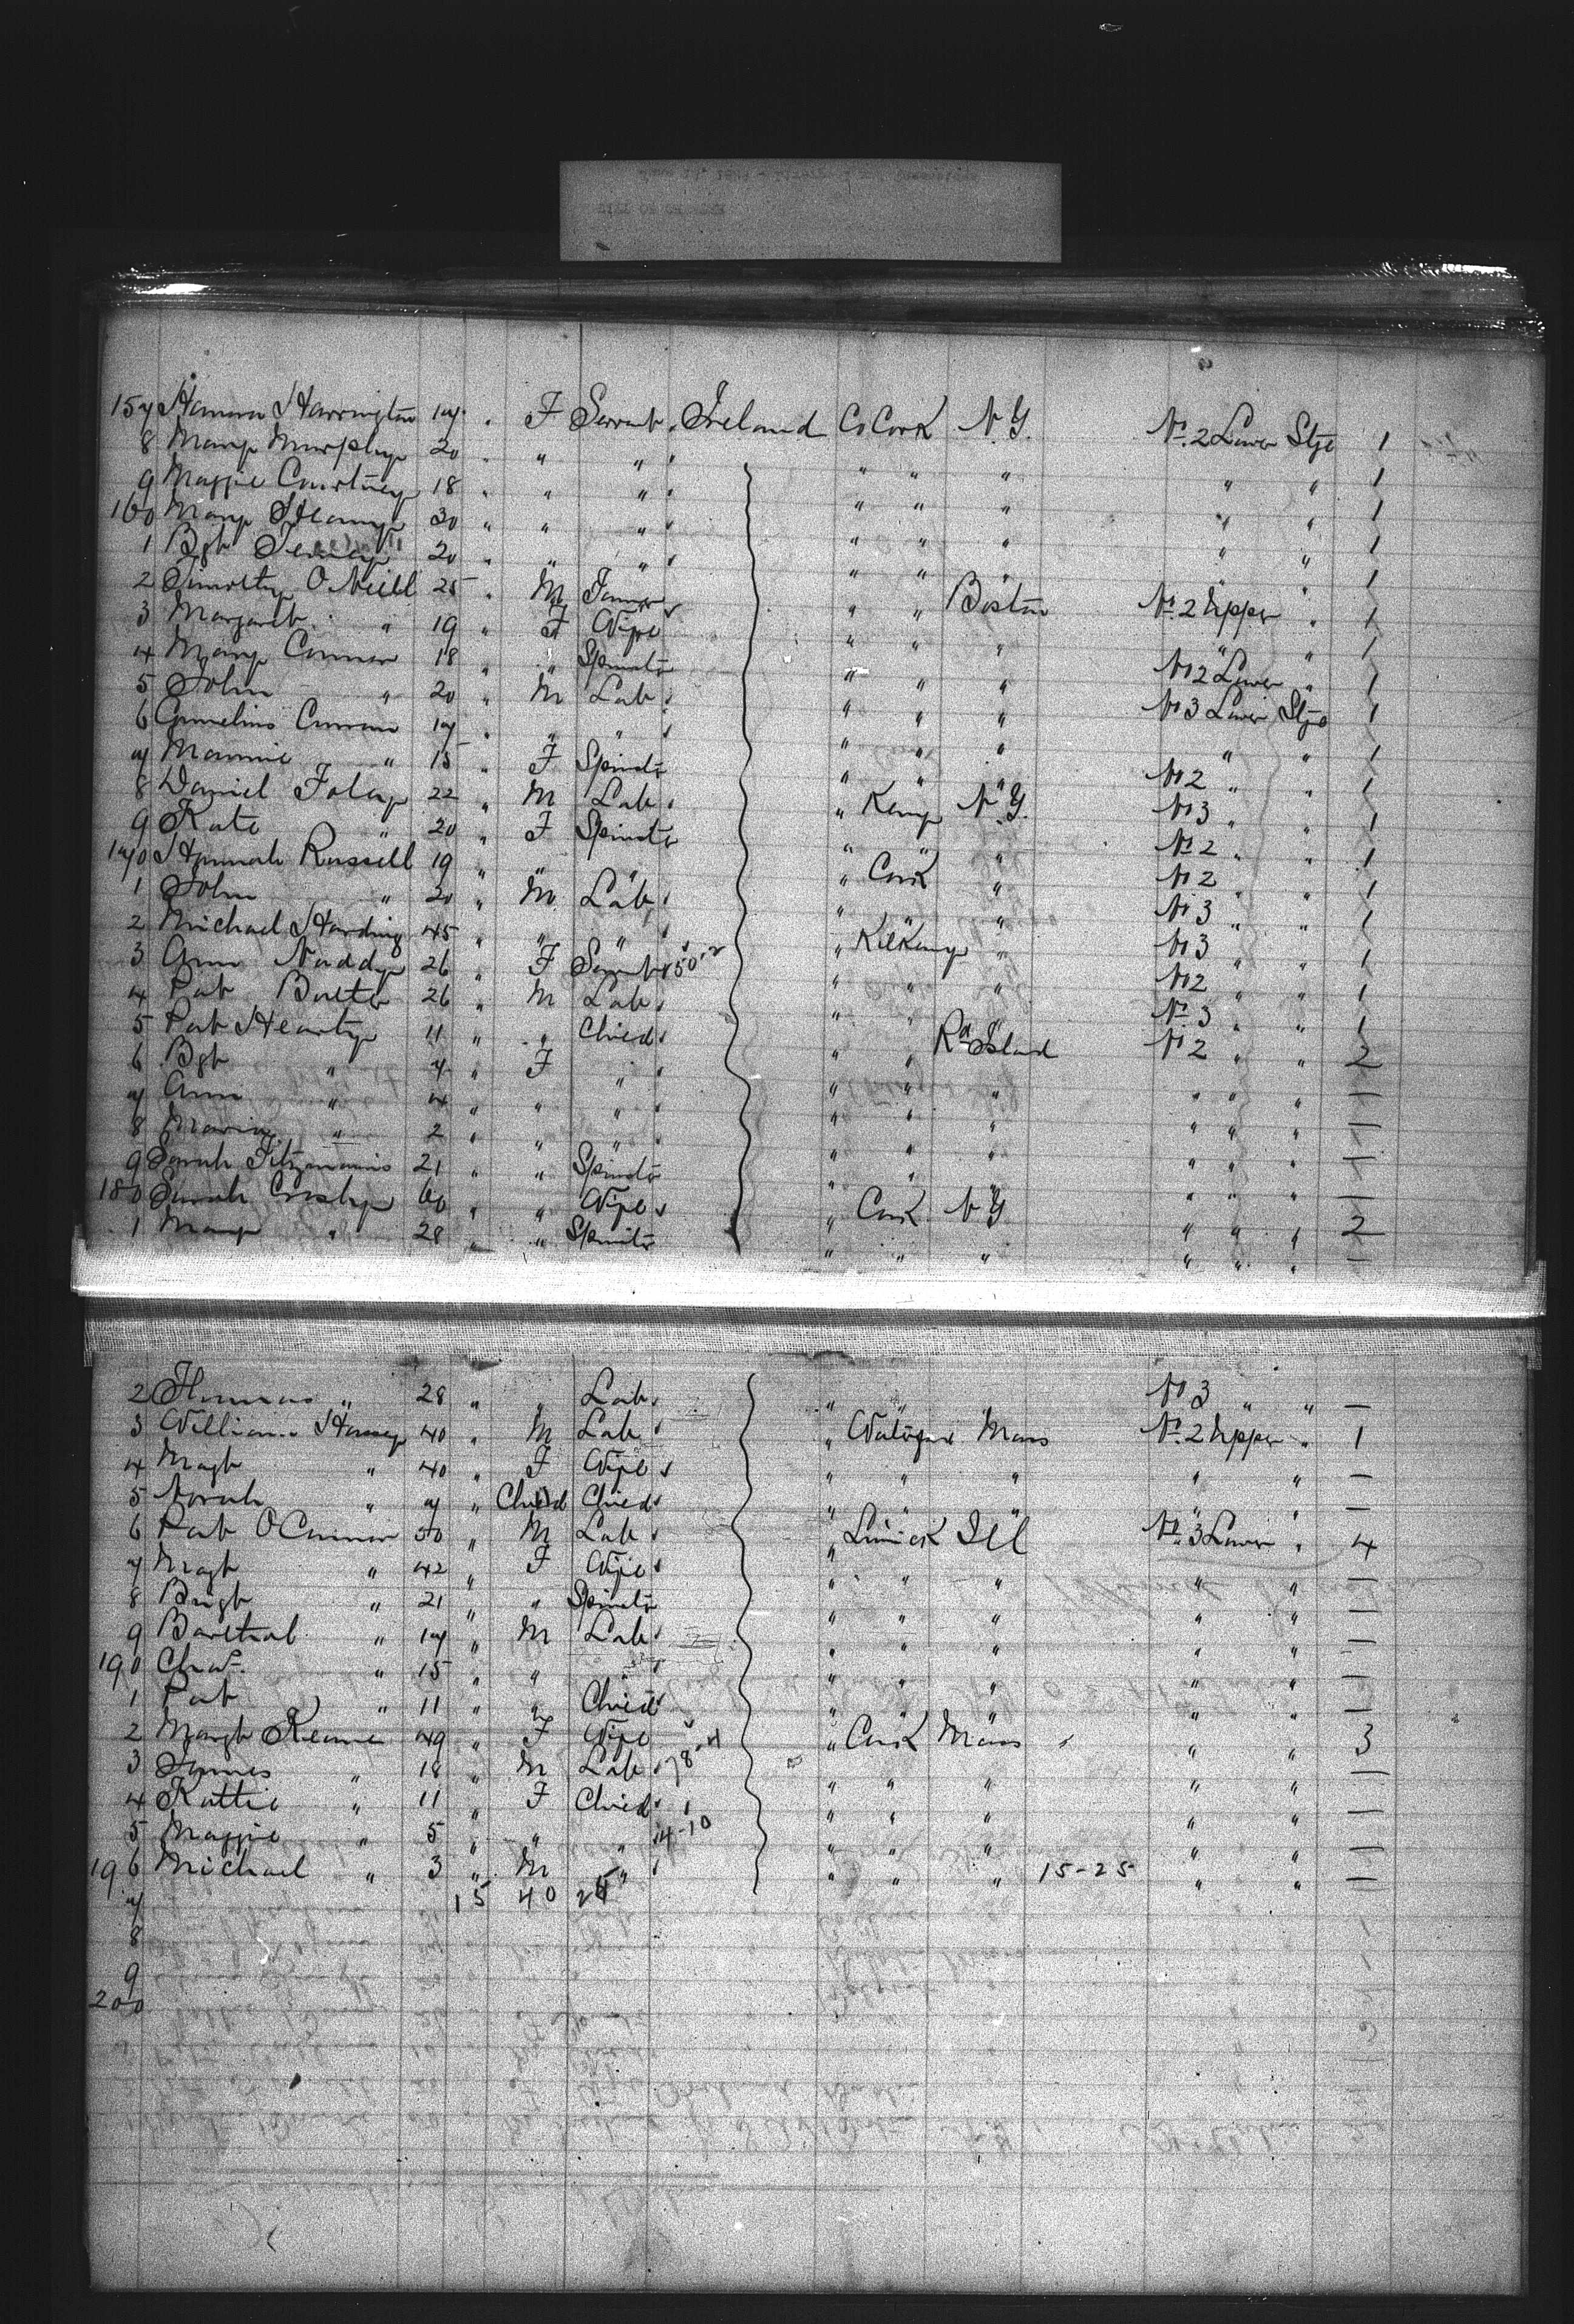 157 Hanna Harrington 17 " F Servt " Ireland Co Cork N.Y. No. 2 Lower Stge 1
8 Mary Murphy 20 " " " " " " " " " 1
9 Maggie Courtney 18 " " " " " " " " " 1
160 Mary 30 " " " " " " " " " 1
1 Bgt 20 " " " " " " " " " 1
2 Timothy O'Neill 25 " M " " Boston No. 2 Upper " 1
3 Margaret " 19 " F Wife " " " " " 1
4 Mary Connor 18 " " Spinster " " " No 2 Lower " 1
5 John " 20 " M Lab " " " No 3 Lower Stge 1
6 Cornelius 17 " " " " " " " " 1
7 Mannie " 15 " F Spinstr " " " No 2 " " 1
8 Daniel Foley 22 " M Lab " Kerry N.Y. No 3 " " 1
9 Kate " 20 " F Spinster " " " No 2 " " 1
170 Hannah Russell 19 " " " " Cork " No 2 " " 1
1 John " 20 " M Lab " " " No 3 " " 1
2 Michael Harding 45 " " " " Kilkeny " No 3 " " 1
3 Ann Naddy 26 " F Servt " " " No 2 " " 1
4 Pat 26 " M Lab " " " No. 3 " " 1
5 Pat Hearty 11 " " Chied " " Rd Island No 2 " " 2
6 Bgt " 7 " F " " " " " " " —
7 Ann " 4 " " " " " " " " " —
8 Maria " 2 " " " " " " " " " —
9 Sarah Fitzmauris 21 " " Spinstr " " " " " " —
180 Sarah 60 " " Wife " Cork N.Y " " " 2
1 Mary " 28 " " Spinstr " " " " " " —
2 Thomas " 28 " " Lab " " No 3 " " —
3 William 40 " M Lab " Waterford Mass No. 2 Upper " 1
4 Magt " 40 " F Wife " " " " " —
5 Norah " 7 " Child Chied " " " " " —
6 Pat O Connor 50 " M Lab " Limick Ill No. 3 Lower " 4
7 Magt " 42 " F Wife " " " " " —
8 Brigt " 21 " " Spinstr " " " " " —
9 " 17 " M Lab " " " " " —
190 Chas. " 15 " " " " " " " " —
1 Pat " 11 " " Chied " " " " " —
2 Margt Keane 49 " F Wife " Cork Mass " " 3
3 James " 18 " M Lab " " " " " —
4 Kattie " 11 " F Chied " " " " " —
5 Maggie " 5 " " " " " " " " —
196 Michael " 3 " M " " " " 15-25 " " —
7 15 40
8
9
200